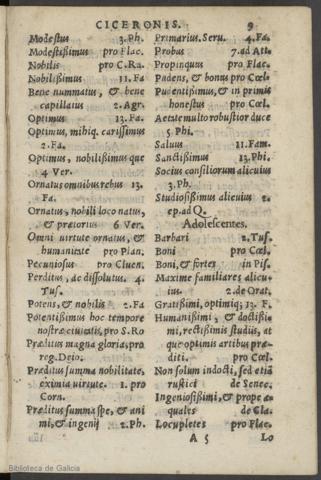 CICERONIS. 9
Modestus 3.Ph.
Modestißimus pro Flac.
Nobilis pro C.Ra.
Nobilißimus 11.Fa
Bene nummatus, & bene
capillatus 2.Agr.
Optimus 13.Fa.
Optimus, mihiq. carißimus
2.Fa.
Optimus, nobilißimus que
4 Ver.
Ornatus omnibus rebus 13.
Fa.
Ornatus, nobili loco natus,
& prætorius 6 Ver.
Omni virtute ornatus, &
humanitate pro Plan.
Pecuniosus pro Cluen.
Perditus, ac dissolutus. 4.
Tus.
Potens, & nobilis 2.Fa
Potentißimus hoc tempore
nostræ ciuitatis, pro S.Ro
Præditus magna gloria, pro
reg.Deio.
Præditus summa nobilitate,
eximia virtute. 1. pro
Corn.
Præditus summa spe, & ani
mi, & ingenij 2.Ph.
Primarius. Seru. 4.Fa.
Probus 7.ad Att.
Propinquus pro Flac.
Pudens, & bonus pro Cœl.
Pudentißimus, & in primis
honestus pro Cœl.
Aetate multo robustior duce
5 Phi.
Saluus 11.Fam.
Sanctißimus 13.Phi.
Socius consiliorum alicuius
3.Ph.
Studiosißimus alicuius 2.
ep.ad Q.
Adolescentes.
Barbari 2.Tus.
Boni pro Cœl.
Boni, & fortes in Pis.
Maxime familiares alicu-
ius 2.de Orat.
Gratißimi, optimiq; 13. F.
Humanißimi, & doctißi-
mi, rectißimis studiis, at
que optimis artibus præ-
diti. pro Cœl.
Non solum indocti, sed etiã
rustici de Senec.
Ingeniosißimi, & prope æ-
quales de Cla.
Locupletes pro Flac.
A 5 Lo
Biblioteca de Galicia